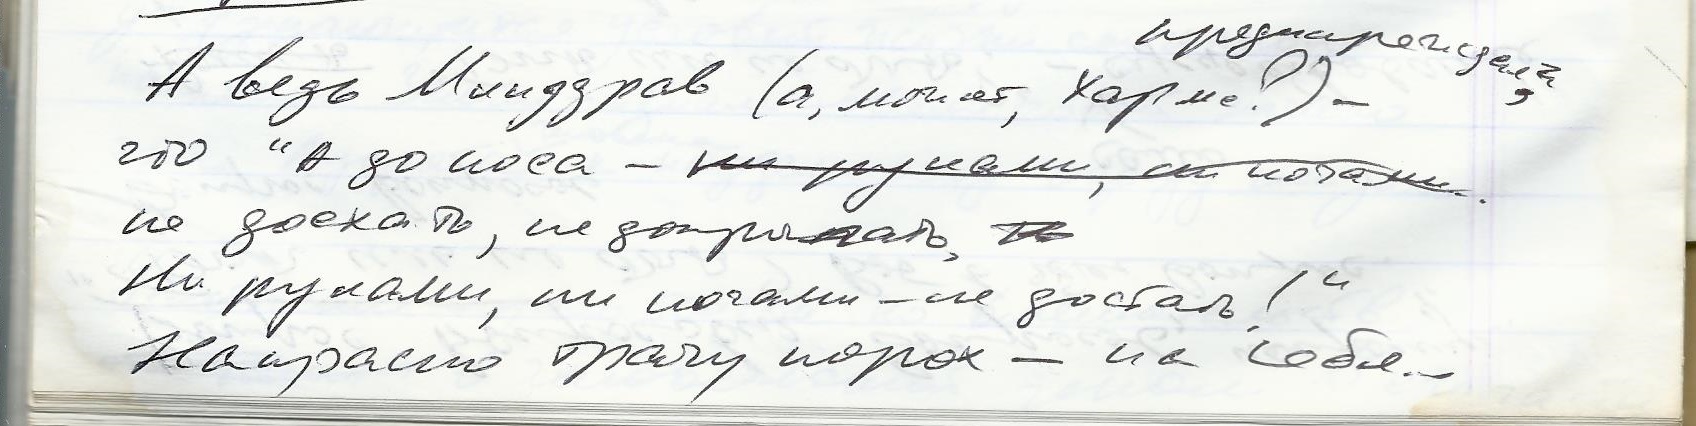 предупреждали,
А ведь Минздрав (а, может, Хармс?) –
что "А до носа – ни руками, ни ногами.
не доехать, не допрыгать,
Ни руками, ни ногами – не достать!"
Напрасно трачу порох – на себя...